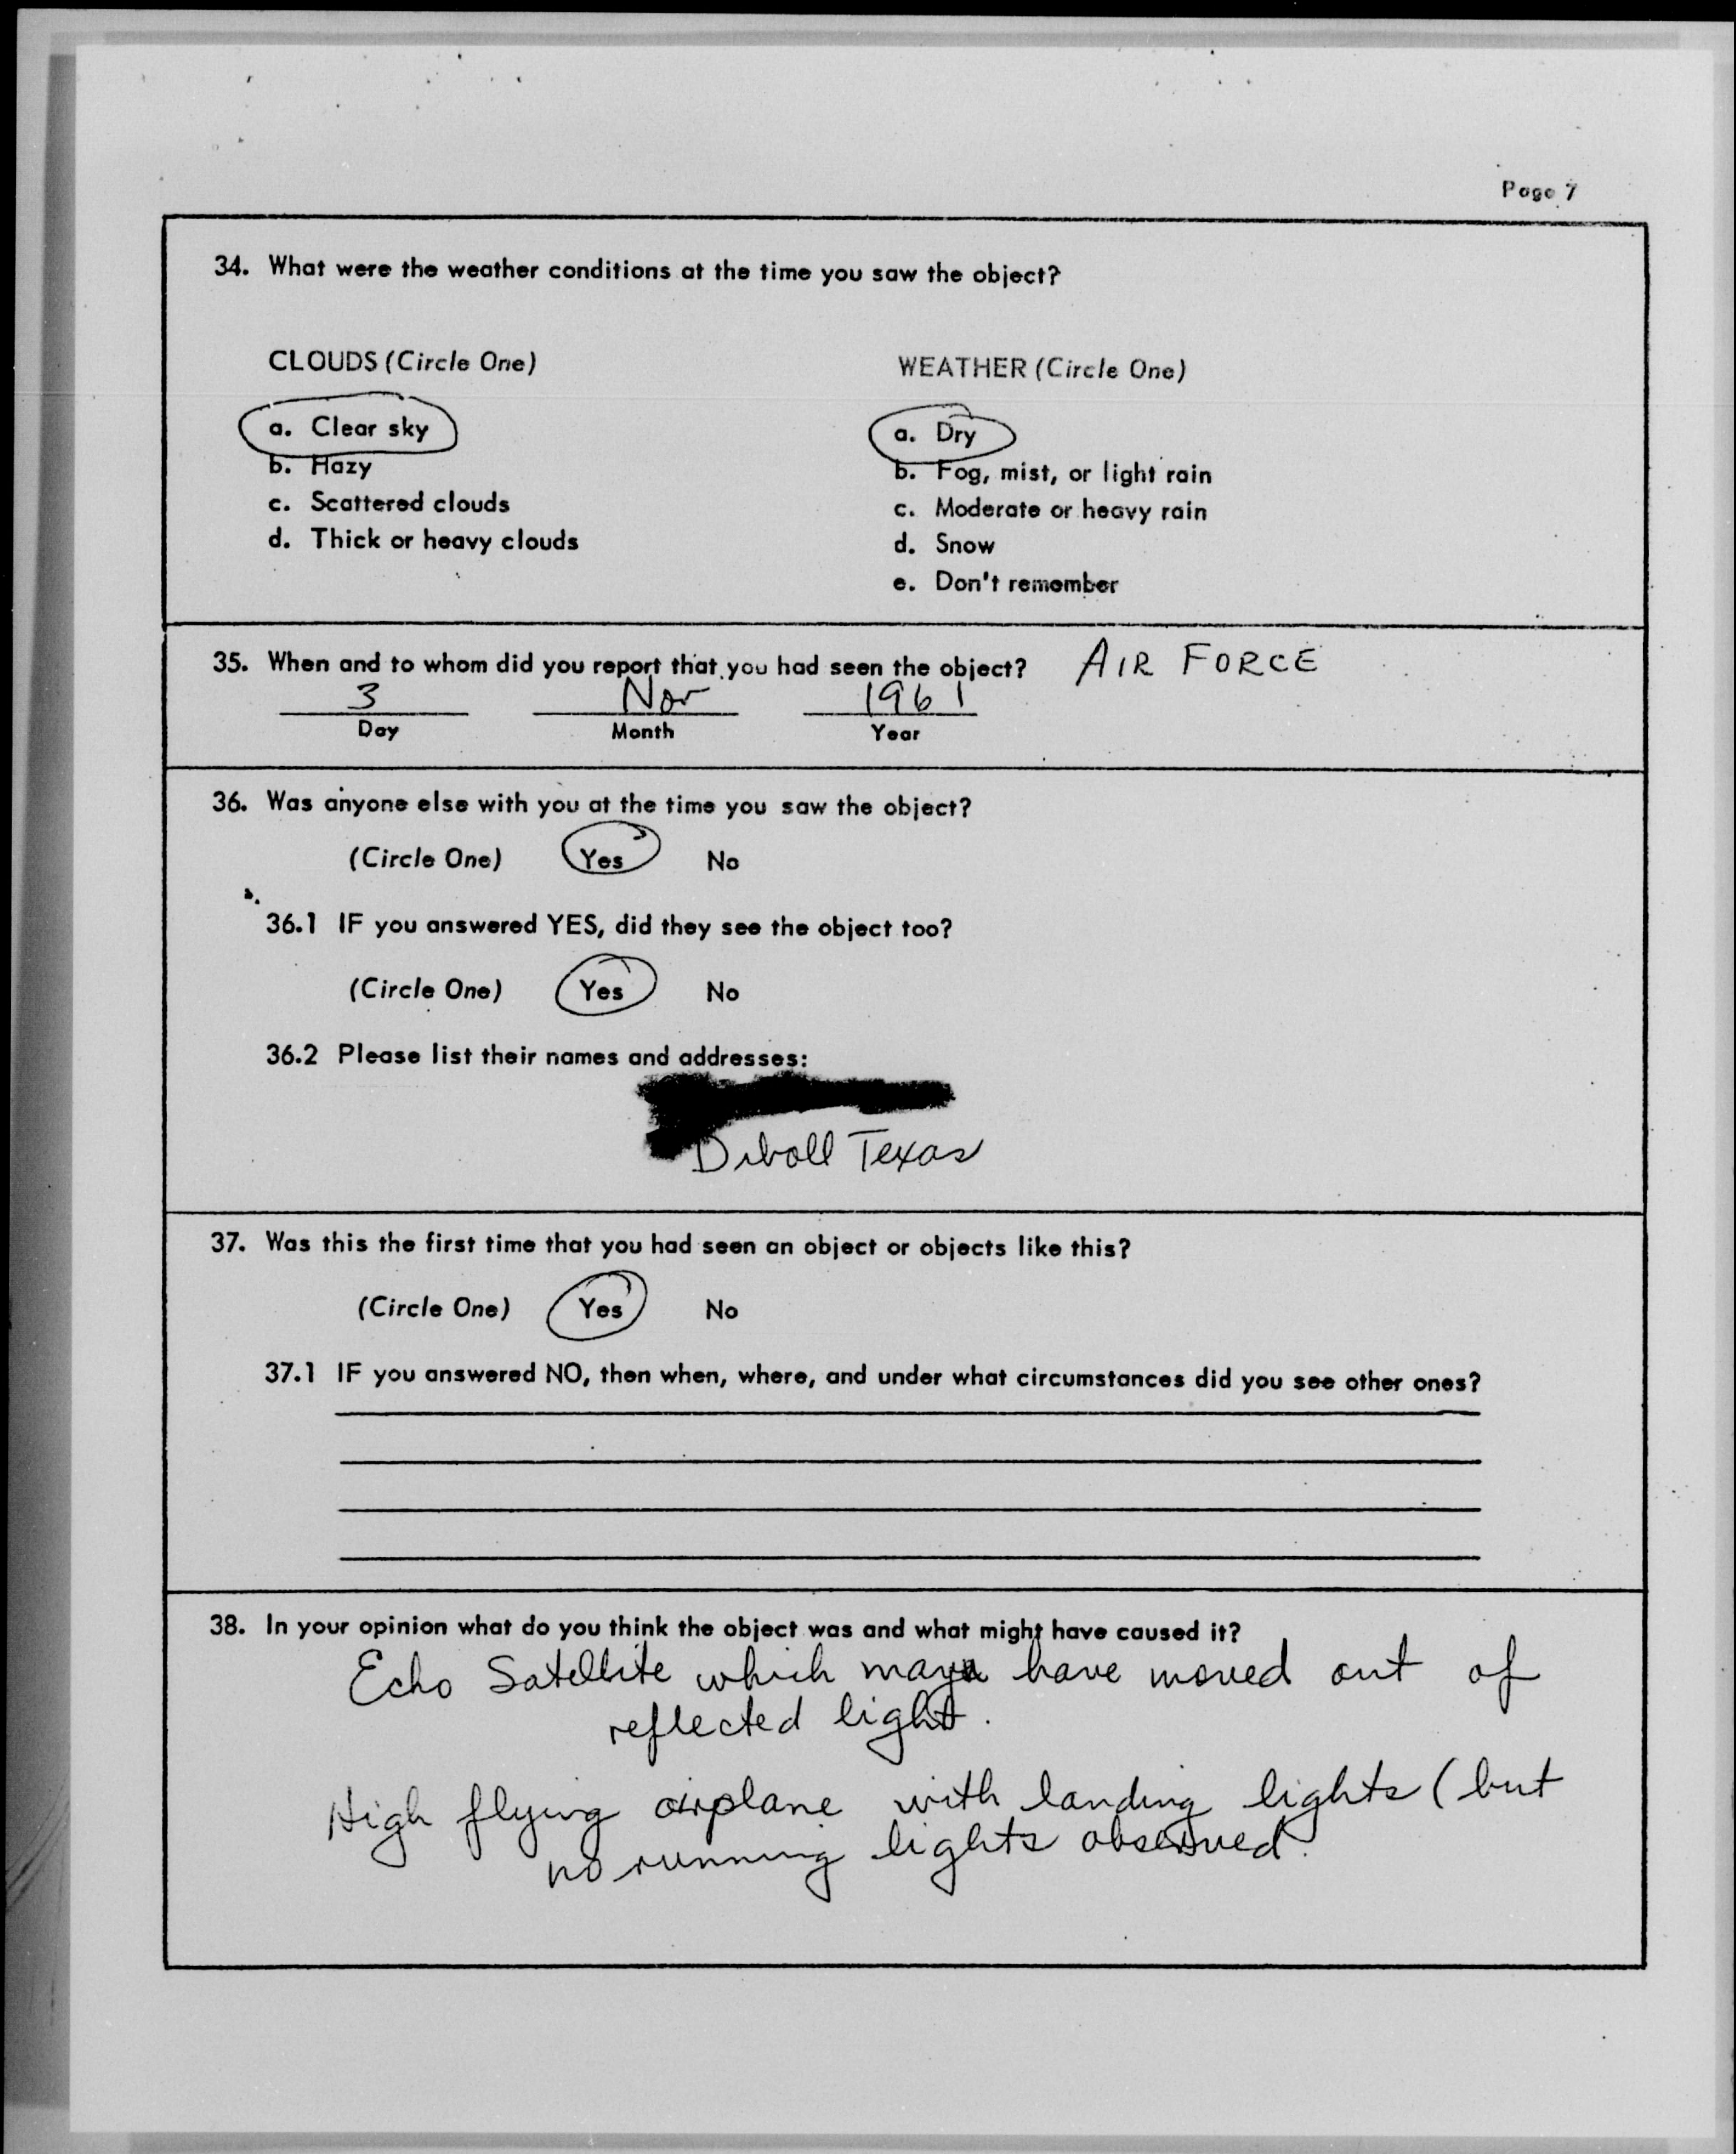 Page 7
34. What were the weather conditions at the time you saw the object?
CLOUDS (Circle One)
a. Clear sky
b. Hazy
c. Scattered clouds
d. Thick or heavy clouds
WEATHER (Circle One)
a. Dry
b. Fog, mist, or light rain
c. Moderate or heavy rain
d. Snow
e. Don't remember
35. When and to whom did you report that you had seen the object? AIR FORCE
3 Nov 1961
Day Month Year
36. Was anyone else with you at the time you saw the object?
(Circle One) Yes No
36.1 IF you answered YES, did they see the object too?
(Circle One) Yes No
36.2 Please list their names and addresses:
Diboll Texas
37. Was this the first time that you had seen an object or objects like this?
(Circle One) Yes No
37.1 IF you answered NO, then when, where, and under what circumstances did you see other ones?
38. In your opinion what do you think the object was and what might have caused it?
Echo Satellite which may have moved out of
reflected light.
High flying airplane with landing lights (but
no running lights observed.